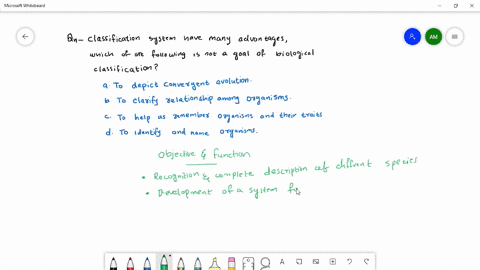 Microsoft Whiteboard
AM
Qn- Classification system have many advantages,
which of are following is not a goal of biological
classification?
a. To depict convergent evolution.
b To clarify relationship among organisms.
c. To help us remember organisms and their traits
d. To identify and name organisms.
Objective & function
• Recognition & complete description of diffrent species
• Development of a system fo